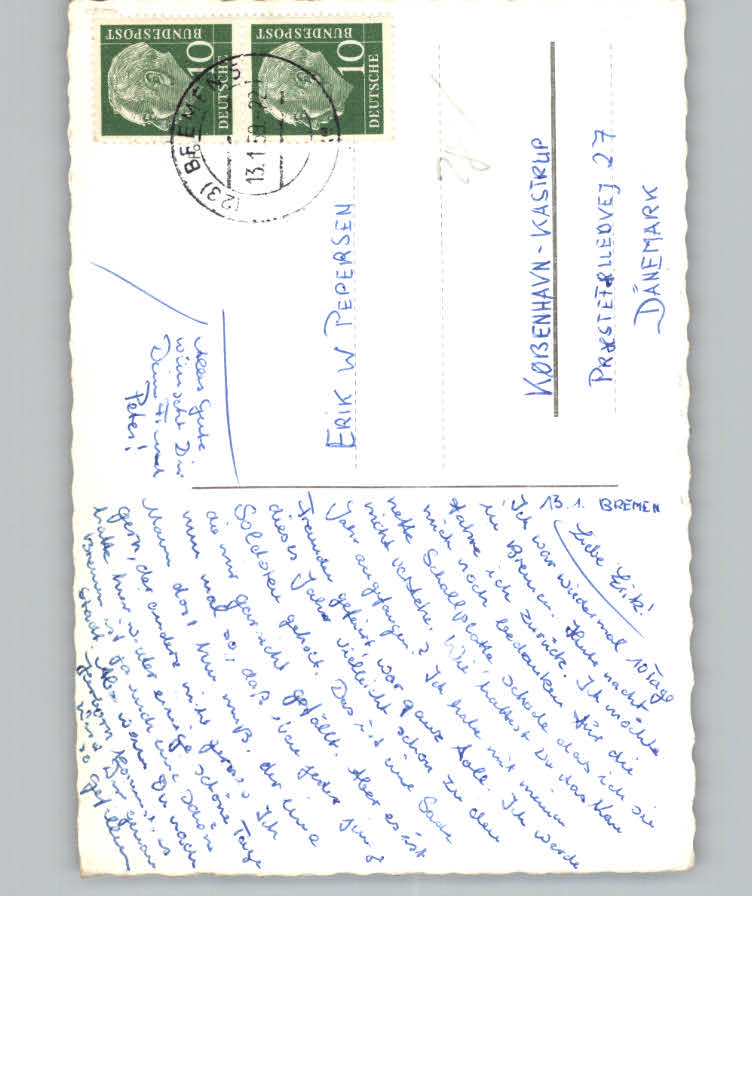 13.1. BREMEN
Liebe Erik!
Ich war wiedermal 10 Tage
in Bremen. Heute nacht
fahre ich zurück. Ich möchte
mich noch bedanken für die
nette Schallplatte schade das ich sie
nicht verstehe. Wie hattest Du das Neue
Jahr angefangen? Ich habe mit meinen
Freunden gefeiert, war ganz tolle. Ich werde
dieses Jahr vielleicht schon zu den
Soldaten geholt. Das ist eine Sache
die mir gar nicht gefällt. Aber es ist
nun mal so, daß jeder junge
Mann dort hin muß, der eine
gern, der andere nicht gern. Ich
hatte hier wieder einige schöne Tage
Bremen ist ja auch eine schöne
Stadt. Aber wenn Du nach
kommst, es
wird Dir genau
so gefallen
Alles Gute
wünscht Dir
Dein Freund
Peter!
ERIK W PEPERSEN
KØBENHAVN-KASTRUP
PRÆSTEFÆLLEDVEJ 27
DÄNEMARK
DEUTSCHE
BUNDESPOST
10
DEUTSCHE
BUNDESPOST
10
(23) BREMEN
13.1.59-22